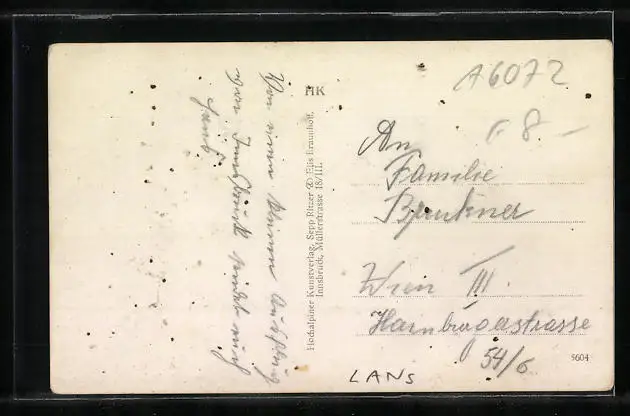 Von einem kleinen Ausflug
von Innsbruck sendet euch
HK
Hochalpiner Kunstverlag, Sepp Ritzer & Elis Braunhoff,
Innsbruck, Müllerstrasse 18/III.
A6072
8-
An
Familie
Wien III
Hainburgerstrasse
54/6
5604
LANS